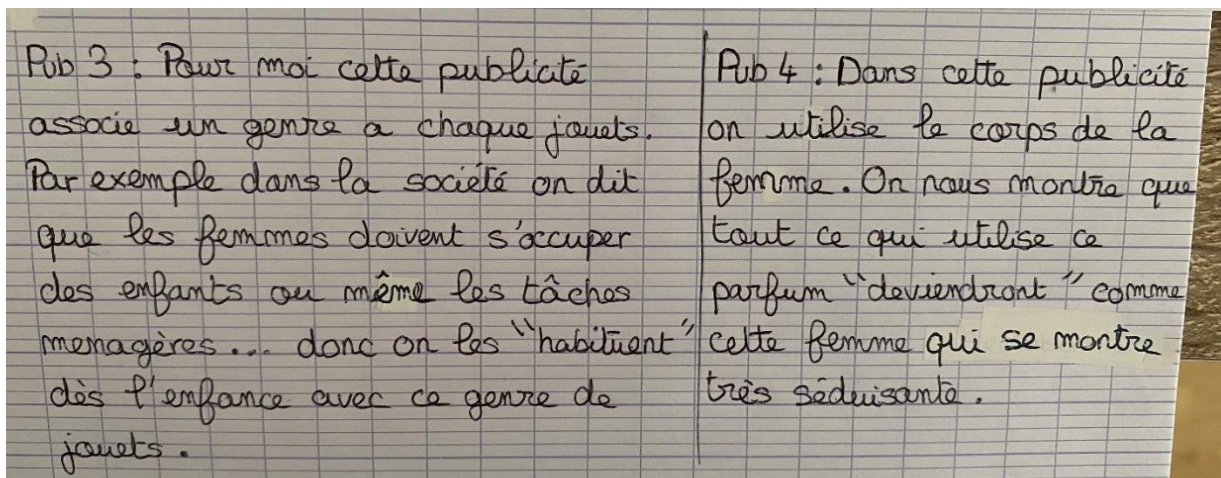 Pub 3 : Pour moi cette publicité
associe un genre a chaque jouets.
Par exemple dans la société on dit
que les femmes doivent s'occuper
des enfants ou même les tâches
menagères... donc on les "habituent"
dès l'enfance avec ce genre de
jouets.
Pub 4 : Dans cette publicité
on utilise le corps de la
femme. On nous montre que
tout ce qui utilise ce
parfum "deviendront" comme
cette femme qui se montre
très séduisante.